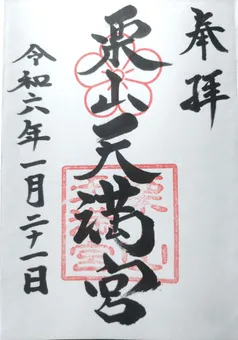 奉拝
栗山天満宮
令和六年一月二十一日